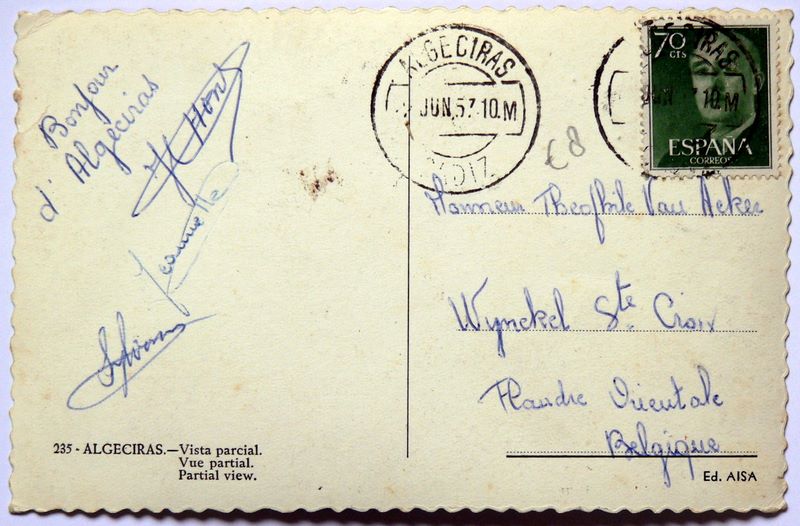 Bonjour
d'Algeciras
Jeannette
235 - ALGECIRAS.—Vista parcial.
Vue partial.
Partial view.
ALGECIRAS
JUN.57.10.M
CADIZ
€8
70
CTS
ESPAÑA
CORREOS
Monsieur Theophile Van Acker
Wynckel Ste Croix
Flandre Orientale
Belgique
Ed. AISA